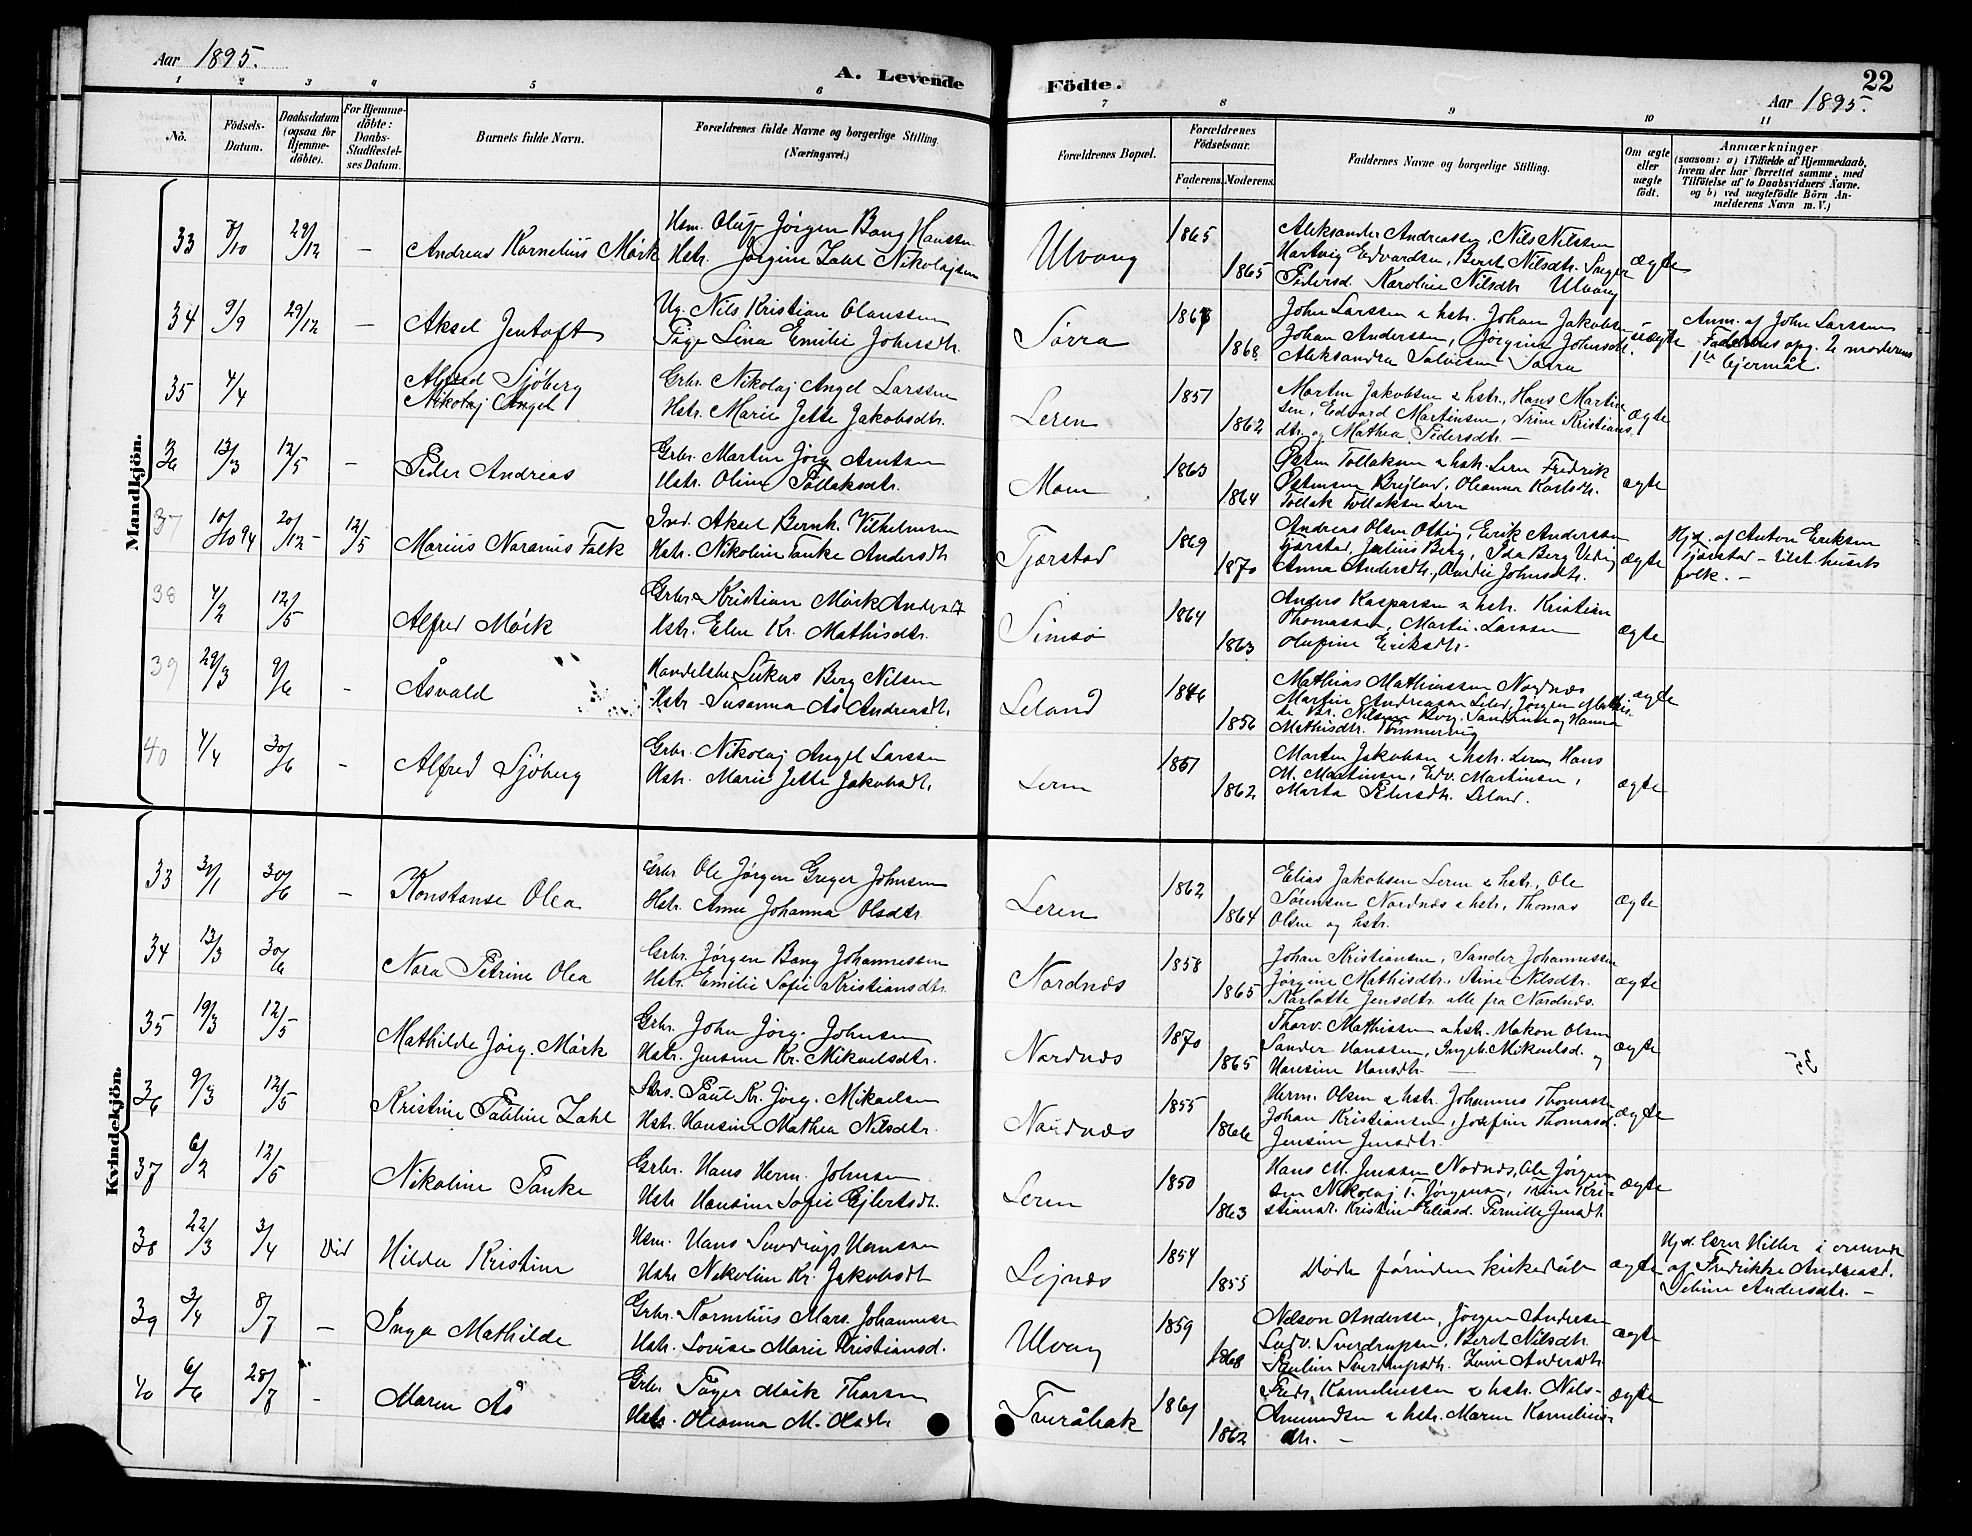 Aar 1895.
A. Levende
Födte.
22
Aar 1895.
1 2 3 4 5 6 7 8 9 10 11
No.
Födsels-Datum.
Daabsdatum (ogsaa for Hjemme-döbte).
For Hjemme-döbte: Daabs-Stadfæstel-ses Datum.
Barnets fulde Navn.
Forældrenes fulde Navne og borgerlige Stilling (Næringsvei.)
Forældrenes Bopæl.
Forældrenes Födselsaar.
Faderens. Moderens.
Faddernes Navne og borgerlige Stilling.
Om ægte eller uægte födt.
Anmærkninger
(saasom: a) i Tilfælde af Hjemmedaab,
hvem der har forrettet samme, med
Tilföielse af to Daabsvidners Navne.
og b) ved uægtefödte Börn An-
melderens Navn m. V.)
Mandkjön.
33 8/10 29/12 — Andreas Kornelius Mörk
Hsm. Oluf Jörgen Bang Hanssen
Hstr. Jörgine Zahl Nikolajsen
Ulvang 1865 1865
Aleksander Andreassen, Nils Nilssen
Hartvig Edvardsen, Berit Nilsdtr.
Pedersd Karoline Nilsdtr Ulvang
ægte
34 9/9 29/12 — Aksel Jentoft
Ug. Nils Kristian Olaussen
Pige Lina Emilie Johnsdtr.
Sörra 1867 1868
John Larssen & hstr. Johan Jakobsen
Johan Anderssen, Jörgine Johnsdtr.
Aleksandra Salvesen Sörra
uægte
Anm. af John Larssen
Faderens opg. 2 moderens
1ste lejermål.
35 4/4 Alfred Sjöberg
Nikolaj Angel
Grbr. Nikolaj Angel Larssen
Hstr. Marie Jette Jakobsdtr.
Leren 1857 1862
Morten Jakobsen & hstr., Hans Martin
sen, Edvard Martinsen, Trine Kristians
dtr og Mathea Pedersdtr. —
ægte
36 13/3 12/5 — Peder Andreas
Grbr. Martin Jörg Arntsen
Hstr. Oline Tollaksdtr.
Mom 1863 1864
Östen Tollaksen & hstr. Leren Fredrik
Östensen Brejlad, Oleanna Karlsdtr.
Tollak Tollaksen Leren
ægte
37 10/10 94 20/12 12/5 Marius Naranus Falk
Ind. Aksel Bernh. Vilhelmsen
Hstr. Nikoline Tanke Andersdtr
Tjørstad 1869 1870
Andreas Olsen Otting, Erik Anderssen
Tjørstad, Julius Berg, Ida Berg
Anna Andersdtr., Johnsdtr.
ægte
Hjd. af Anton Eriksen
Tjørstad — husets
folk. —
38 4/2 12/5 Alfred Mörk
Grbr Kristian Mörk
Hstr. Elen Kr. Mathisdtr.
Simsö 1864 1863
Anders Kaspersen & hstr. Kristian
Thomassen, Martin Larssen
Olufine Eriksdtr.
ægte
39 29/3 9/6 - Åsvald
Handelsbr Lukas Berg Nilsen
Hstr - Susanna Ås Andreasdtr.
Leland 1846 1856
Mathias Mathiassen Nordnæs
Martin Andreassen Leland, Jörgen Mathis
Nilsen Berg, Sandnæs og Hanna
Mathisdtr.
ægte
40 4/4 30/6 - Alfred Sjöberg
Grbr. Nikolaj Angel Larssen
Hstr. Marie Jette Jakobsdtr.
Leren 1857 1862
Morten Jakobsen & hstr. Leren Hans
M. Martinsen, Edv. Martinsen,
Marta Pedersdtr. Leland.
ægte
Kvindekjön.
33 30/1 30/6 — Konstanse Olea
Grbr Ole Jørgen Greger Johnsen
Hstr. Anne Johanna Olsdtr.
Leren 1862 1864
Elias Jakobsen Leren & hstr., Ole
Sörensen Nordnæs & hstr., Thomas
Olsen og hstr.
ægte
34 13/3 30/6 Nora Petrine Olea
Grbr. Jörgen Bang Johannessen
Hstr. Emilie Sofie Kristiansdtr.
Nordnæs 1858 1865
Johan Kristiansen, Sander Johannessen
Jörgine Mathisdtr. Nilsdtr.
Karlotte Jensdtr alle fra Nordnæs.
ægte
35 19/3 12/5 Mathilde Jörg. Mörk
Grbr. John Jörg. Johnsen
Hstr. Jensine Kr. Mikaelsdtr.
Nordnæs 1870 1865
Thorv. Mathissen & hstr. Hakon Olsen
Sander Hanssen, Ingeb. Mikaelsd. og
Hansine Hansdtr. —
ægte
36 9/3 12/5 Kristine Pauline Zahl
Strs. Paul Kr. Jörg. Mikaelsen
Hstr. Hansine Mathea Nilsdtr.
Nordnæs 1855 1866
Herm. Olsen & hstr. Johannes Thomassen
Johan Kristiansen, Josefine Thomasd.
Jensine Jensdtr.
ægte
37 6/2 12/5 Nikoline Tanke
Grbr. Hans Herm. Johnsen
Hstr Hansine Sofie Ejlertsdtr.
Leren 1850 1863
Hans M. Jenssen Nordnæs, Ole Jörgen
sen Nikolaj T. Jörgensen, Trine Kri-
stiansd. Kristine Eliasd. Pernille Jensdtr.
ægte
38 22/3 3/4 Död Hilda Kristine
Hsm. Hans Sverdrup Hanssen
Hstr Nikoline Kr. Jakobsdt
Lejnæs 1854 1855
Döde förinden kirkedåb
ægte
Hjd. Miller i
af Fredrikke Andreasd.
Andersdtr. —
39 3/4 8/7 — Inga Mathilde
Grbr. Kornelius Mars. Johannesen
Hstr. Lovise Marie Kristiansd.
Ulvang 1859 1868
Nelson Andersen, Jörgen Andersen
Ludv. Sverdrupsen, Beret Nilsdtr
Pauline Sverdrupsdtr. Andersdtr
ægte
40 6/6 28/7 - Maren Ås
Grbr Peder Mörk Thorsen
Hstr. Oleanna M. Olsdtr
Tveråbak 1861 1862
Fredr. Korneliussen & hstr. Nils-
Amundsen & hstr. Maren Kornelius-
dtr. —
ægte